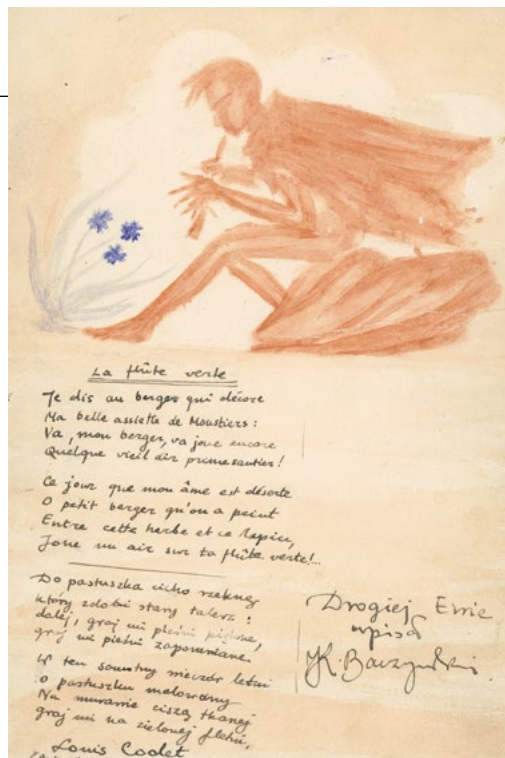 La flûte verte
Je dis au berger qui décore
Ma belle assiette de Moustiers :
Va, mon berger, va joue encore
Quelque vieil air primesautier!
Ce jour que mon âme est déserte
O petit berger qu'on a peint
Entre cette herbe et ce lapin,
Joue un air sur ta flûte verte!..
Do pastuszka cicho rzeknę
który zdobi stary talerz :
dalej, graj mi pieśni piękne,
graj mi pieśni zapomniane.
W ten smutny wieczór letni
O pastuszku malowany
Na murawie ciszą tkanej
graj mi na zielonej fletni,
Louis Codet
Drogiej Ewie
wpisał
K. Baczyński